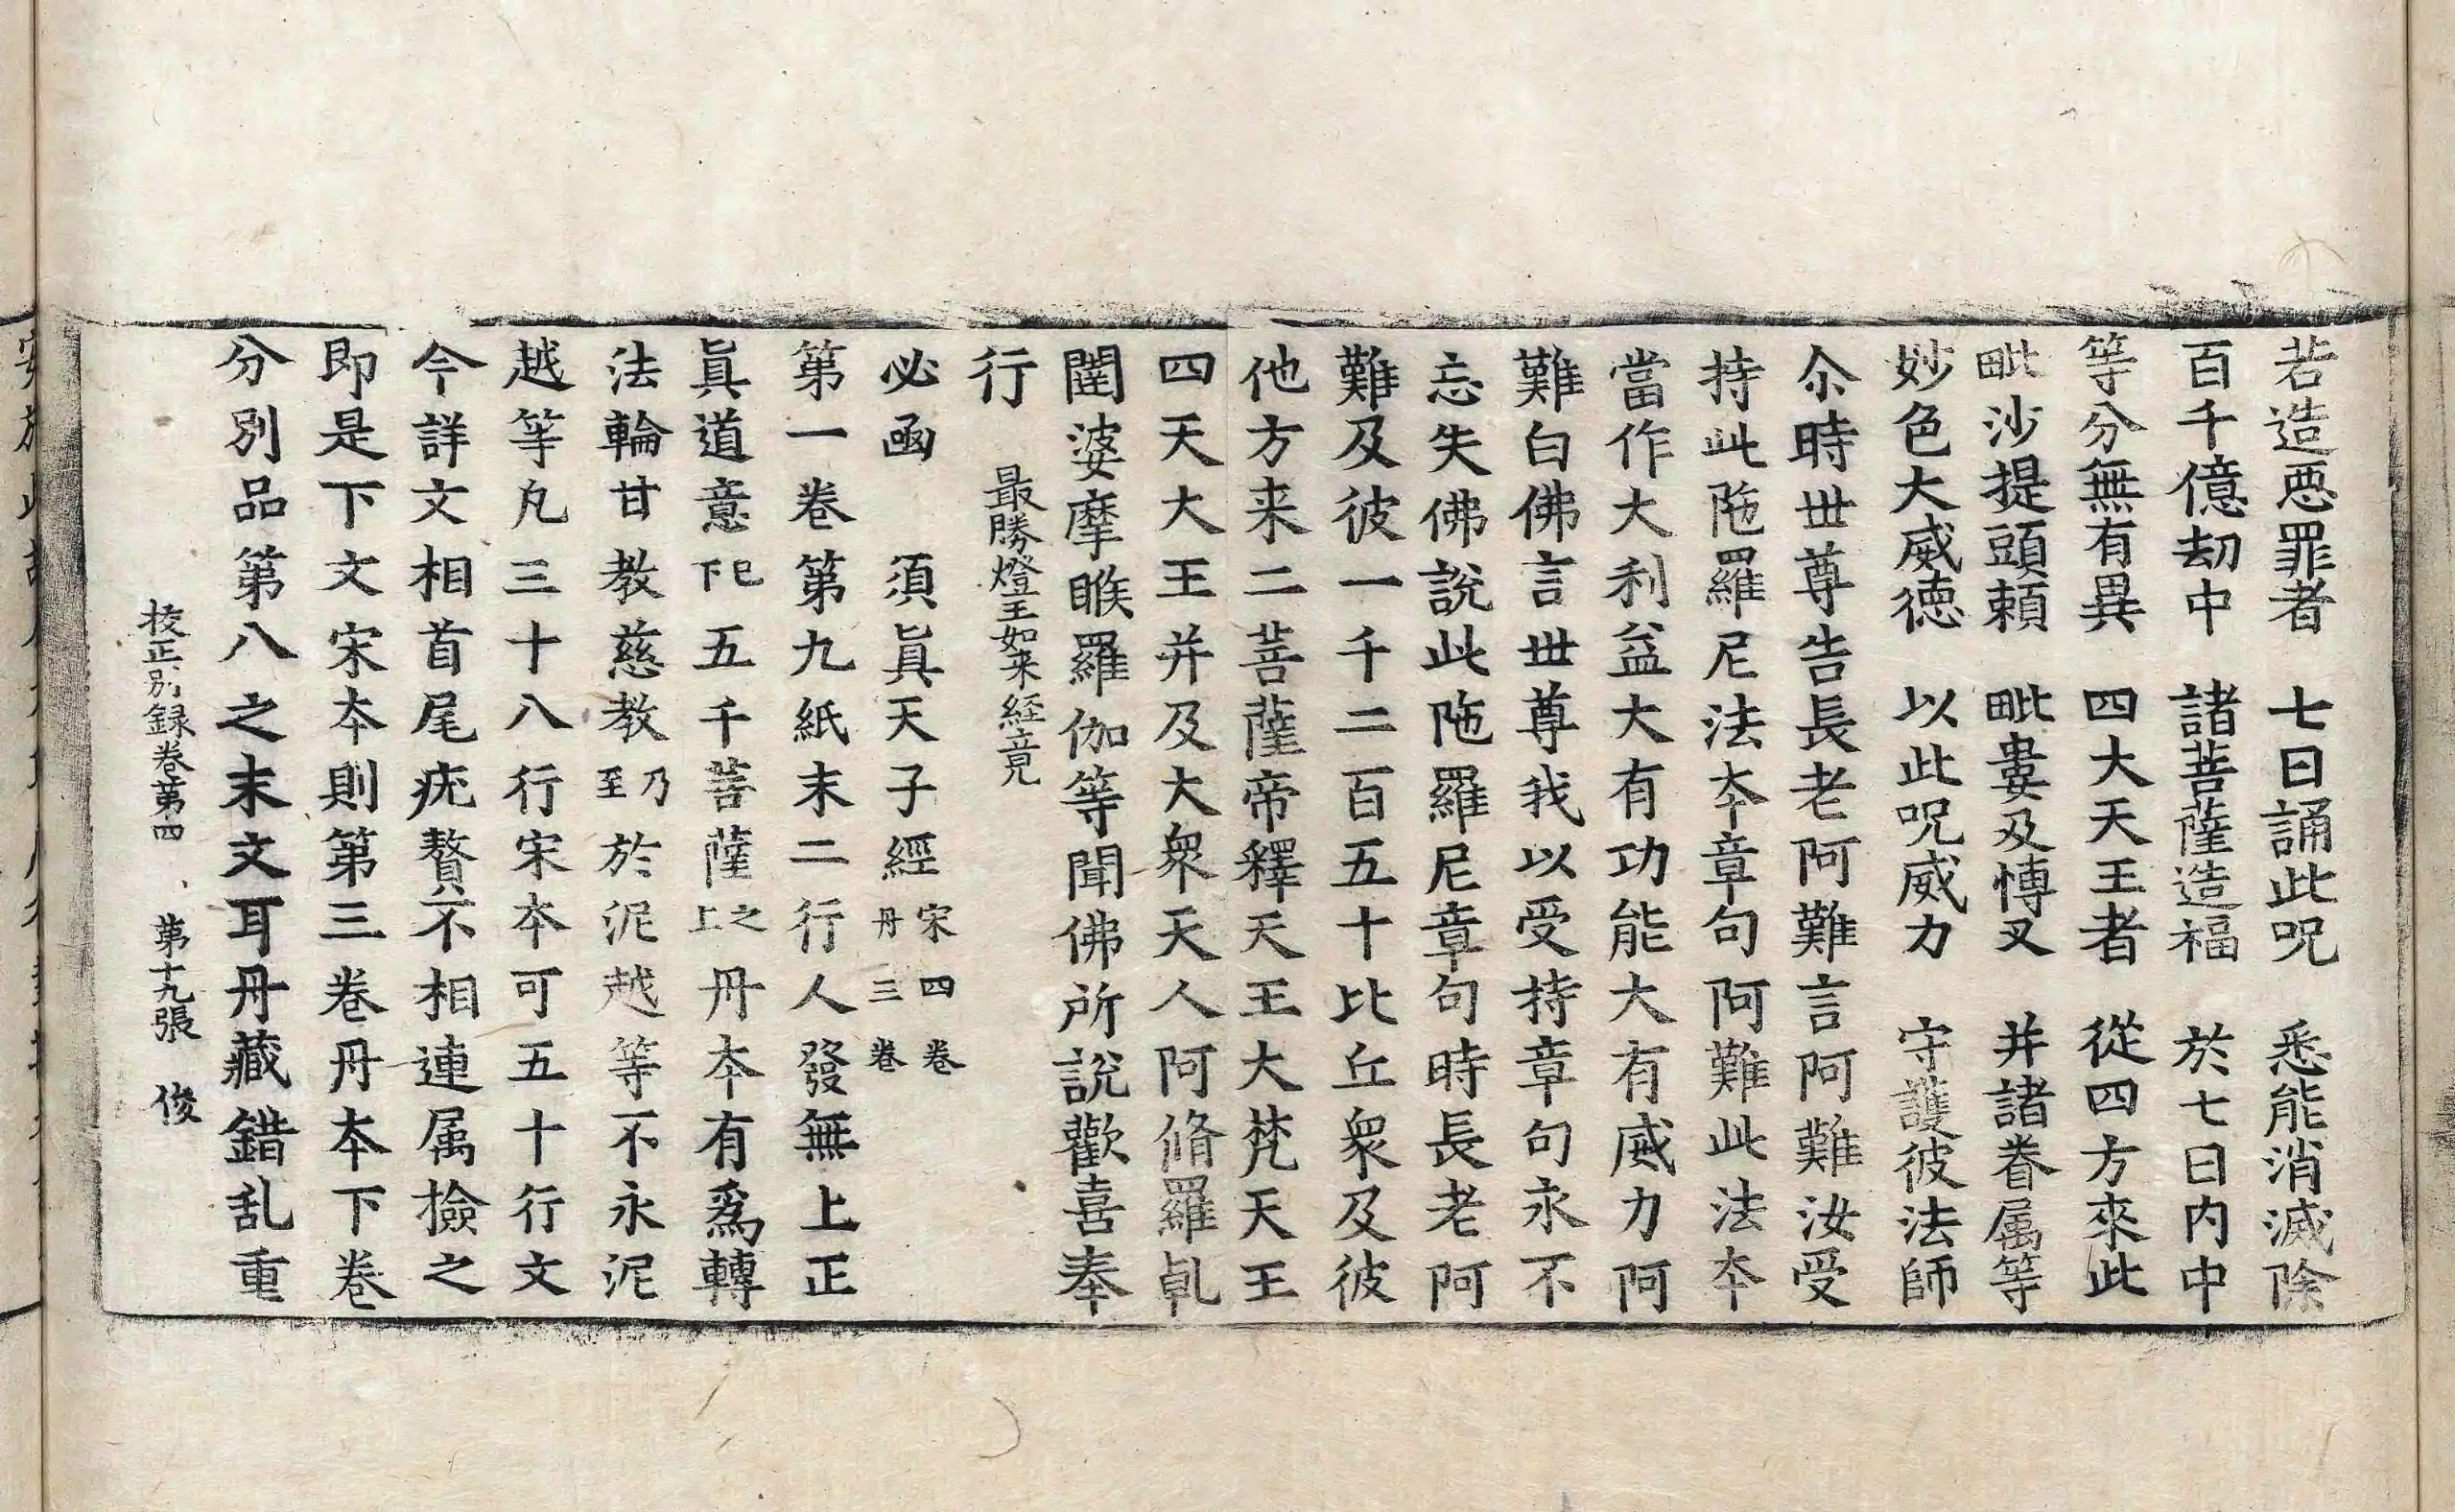 若造惡罪者　七日誦此呪　悉能消滅除
百千億劫中　諸菩薩造福　於七日内中
等分無有異　四大天王者　從四方來此
毗沙提頭頼　毗婁及慱叉　并諸眷属等
妙色大威德　以此呪威力　守護彼法師
尒時世尊告長老阿難言阿難汝受
持此陁羅尼法夲章句阿難此法夲
當作大利益大有功能大有威力阿
難白佛言世尊我以受持章句永不
忘失佛說此陁羅尼章句時長老阿
難及彼一千二百五十比丘衆及彼
他方来二菩薩帝釋天王大梵天王
四天大王并及大衆天人阿脩羅乹
闥婆摩睺羅伽等聞佛所說歡喜奉
行　最勝燈王如来経竟
必函　須眞天子經 宋四卷 丹三卷
第一卷第九紙末二行人發無上正
眞道意 已下 五千菩薩 之上 丹夲有爲轉
法輪甘教慈教 乃至 於泥越等不永泥
越等凡三十八行宋夲可五十行文
今詳文相首尾疣贅不相連属撿之
即是下文宋夲則第三卷丹夲下卷
分別品第八之末文耳丹藏錯乱重
校正別録卷第四　第十九張　俊